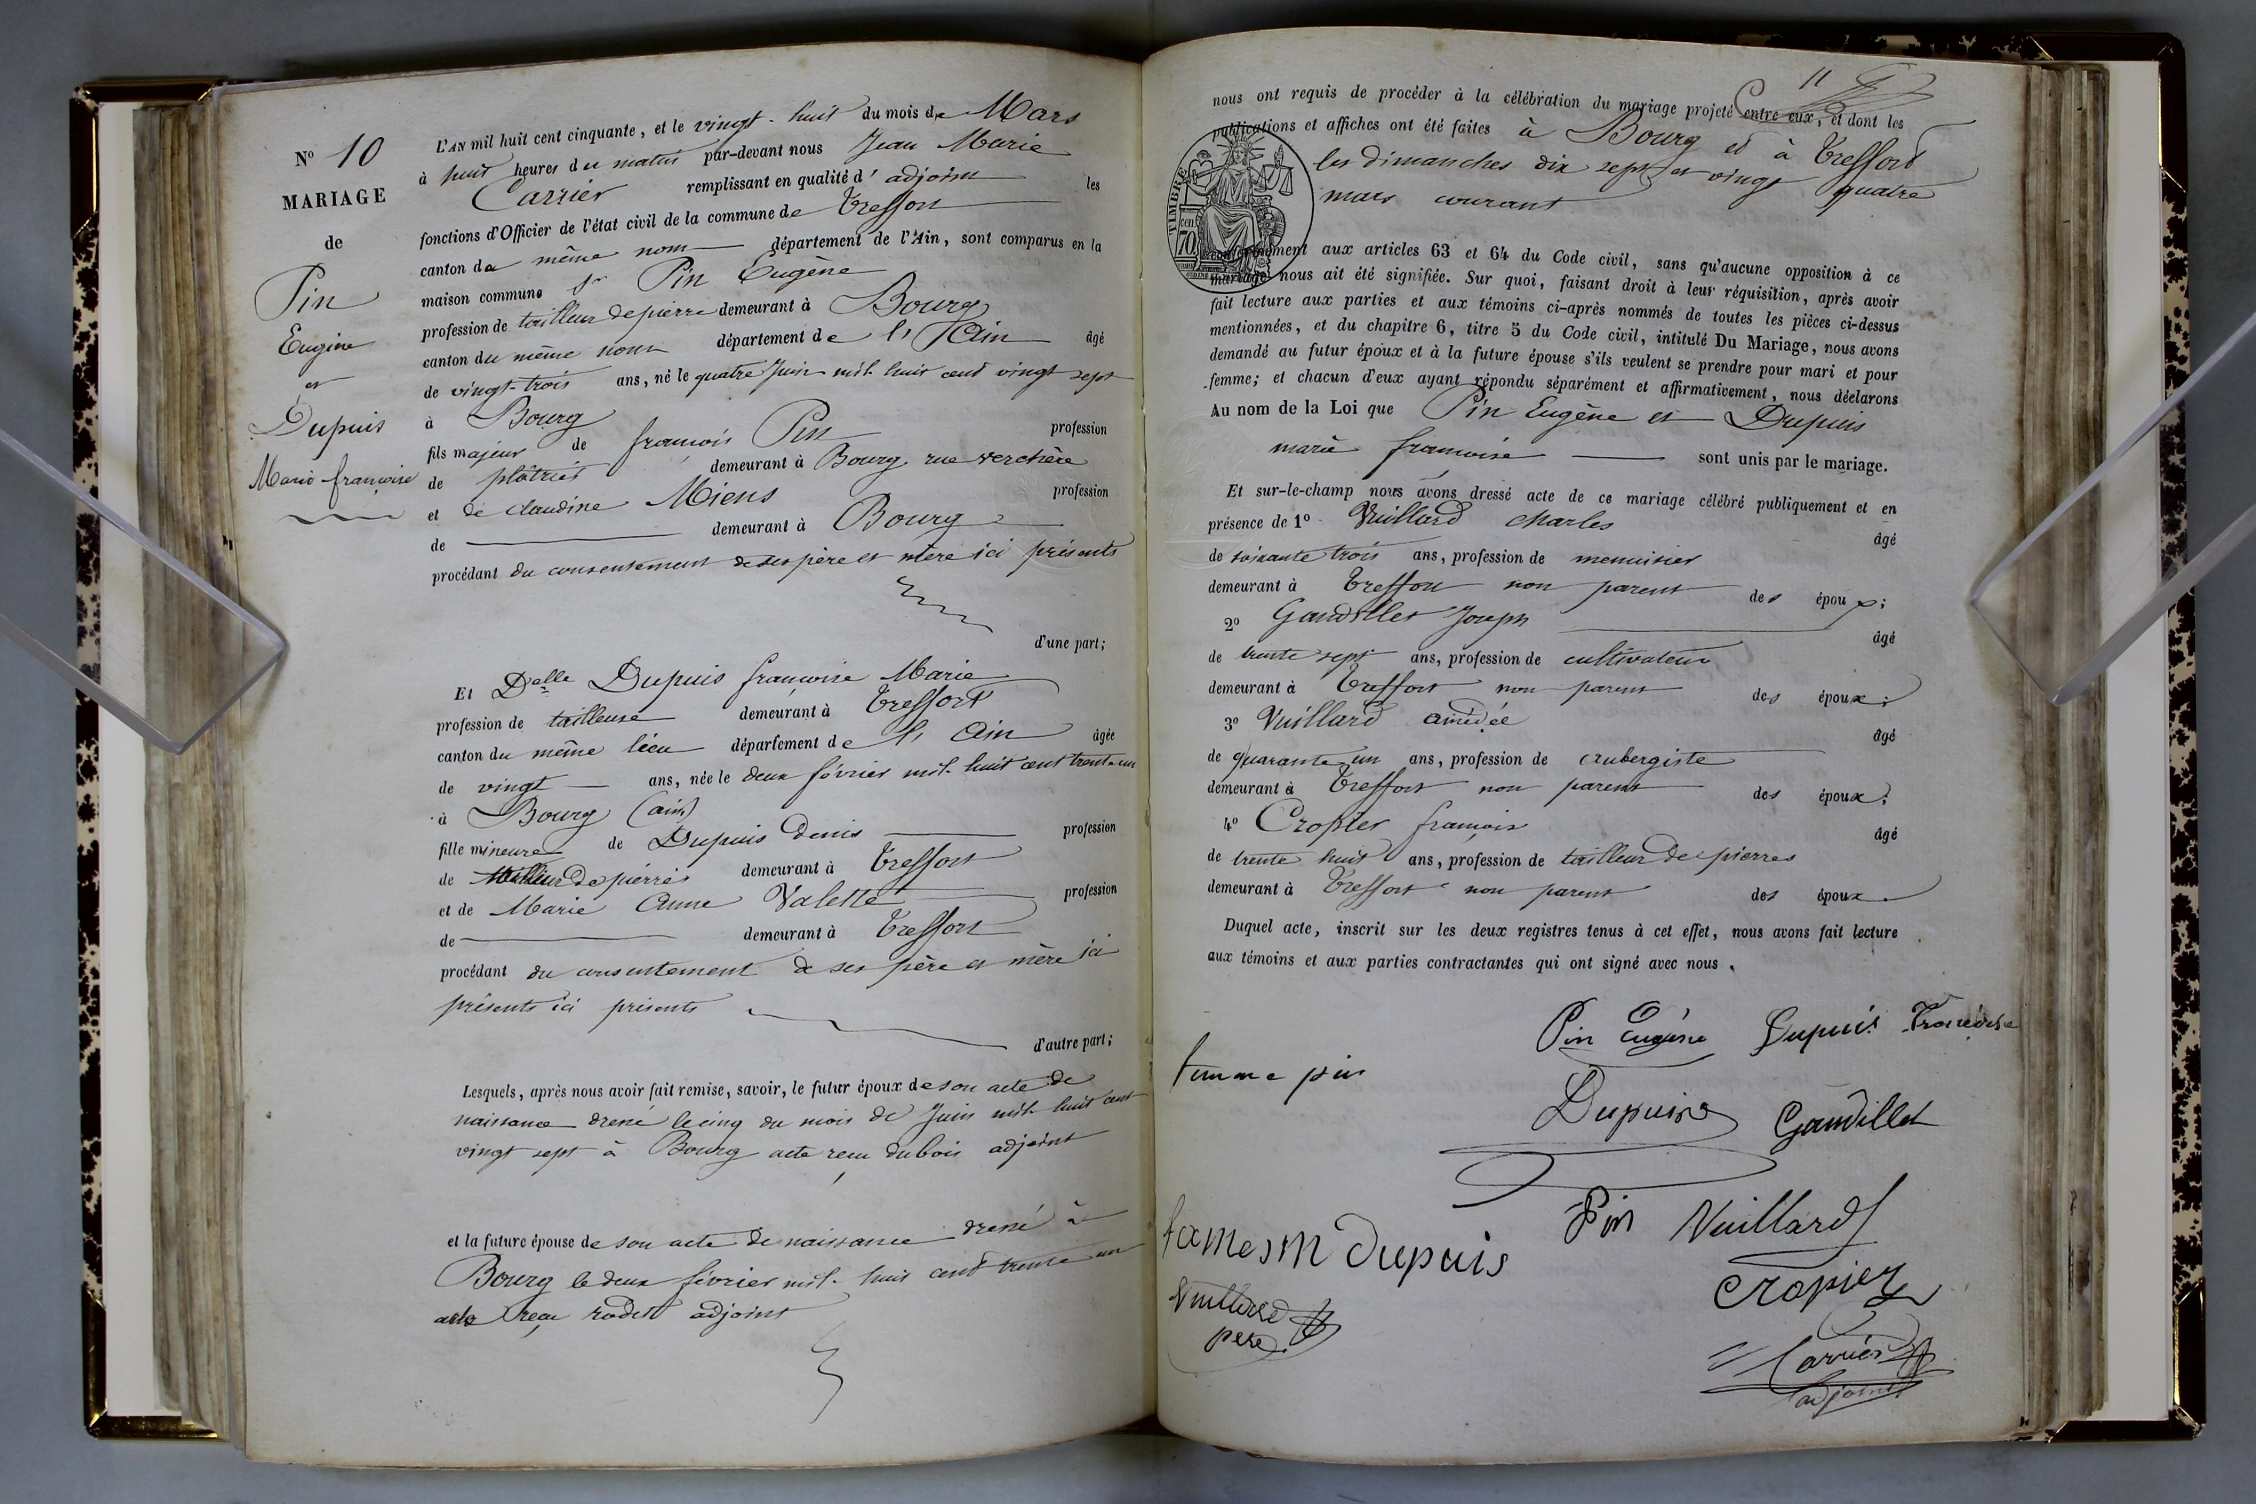 N° 10
MARIAGE
de
Pin
Eugène
et
Dupuis
Marie françoise
L'AN mil huit cent cinquante, et le vingt-huit du mois de Mars
à huit heures du matin par-devant nous Jean Marie
Carrier remplissant en qualité d'adjoint les
fonctions d'Officier de l'état civil de la commune de Treffort
canton du même nom département de l'Ain, sont comparus en la
maison commune Sr Pin Eugène
profession de tailleur de pierre demeurant à Bourg
canton du même nom département de l'Ain âgé
de vingt-trois ans, né le quatre Juin mil huit cent vingt sept
à Bourg
fils majeur de françois Pin profession
de plâtrier demeurant à Bourg rue verchère
et de claudine Miens profession
de demeurant à Bourg
procédant du consentement de ses père et mère ici présents
d'une part;
Et Delle Dupuis françoise Marie
profession de tailleuse demeurant à Treffort
canton du même lieu département de l'Ain âgée
de vingt ans, née le deux février mil huit cent trente un
à Bourg (ain)
fille mineure de Dupuis denis profession
de tailleur de pierres demeurant à Treffort
et de Marie Anne Valette profession
de demeurant à Treffort
procédant du consentement de ses père et mère ici
présents ici présents
d'autre part;
Lesquels, après nous avoir fait remise, savoir, le futur époux de son acte de
naissance dressé le cinq du mois de Juin mil huit cent
vingt sept à Bourg acte reçu dubois adjoint
et la future épouse de son acte de naissance dressé à
Bourg le deux février mil huit cent trente un
acte reçu rodet adjoint
11
nous ont requis de procéder à la célébration du mariage projeté entre eux, et dont les
publications et affiches ont été faites à Bourg et à Treffort
les dimanches dix sept et vingt quatre
mars courant
TIMBRE
70
conformément aux articles 63 et 64 du Code civil, sans qu'aucune opposition à ce
mariage nous ait été signifiée. Sur quoi, faisant droit à leur réquisition, après avoir
fait lecture aux parties et aux témoins ci-après nommés de toutes les pièces ci-dessus
mentionnées, et du chapitre 6, titre 5 du Code civil, intitulé Du Mariage, nous avons
demandé au futur époux et à la future épouse s'ils veulent se prendre pour mari et pour
femme; et chacun d'eux ayant répondu séparément et affirmativement, nous déclarons
Au nom de la Loi que Pin Eugène et Dupuis
marie françoise sont unis par le mariage.
Et sur-le-champ nous avons dressé acte de ce mariage célébré publiquement et en
présence de 1° Vuillard charles âgé
de soixante trois ans, profession de menuisier
demeurant à Treffort non parent des époux;
2° Gaudillet Joseph âgé
de trente sept ans, profession de cultivateur
demeurant à Treffort non parent des époux;
3° Vuillard amédée âgé
de quarante un ans, profession de aubergiste
demeurant à Treffort non parent des époux;
4° Cropier françois âgé
de trente huit ans, profession de tailleur de pierres
demeurant à Treffort non parent des époux.
Duquel acte, inscrit sur les deux registres tenus à cet effet, nous avons fait lecture
aux témoins et aux parties contractantes qui ont signé avec nous.
Pin Eugène Dupuis Françoise
femme pin
Dupuis Gaudillet
Pin Vuillard
fame Dupuis
cropier
Vuillard
père
Carrier
adjoint